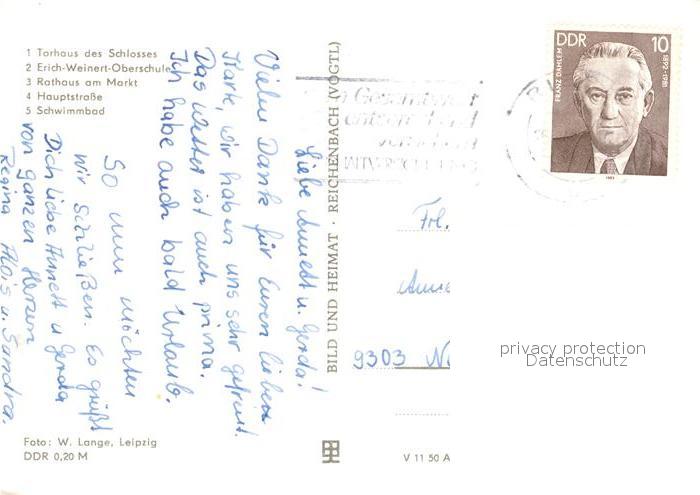 1 Torhaus des Schlosses
2 Erich-Weinert-Oberschule
3 Rathaus am Markt
4 Hauptstraße
5 Schwimmbad
Liebe Annett u. Gerda!
Vielen Dank für Euren lieben
Karte, wir haben uns sehr gefreut.
Das Wetter ist auch prima.
Ich habe auch bald Urlaub.
So nun möchten
wir schließen. Es grüßt
Dich liebe Annett u Gerda
von ganzen Herzen
Regina Alois u. Sandra.
Foto: W. Lange, Leipzig
DDR 0,20 M
BILD UND HEIMAT · REICHENBACH (VOGTL)
V 11 50 A
DDR 10
FRANZ DAHLEM 1892–1981
1983
Frl.
Anne
9303
privacy protection
Datenschutz